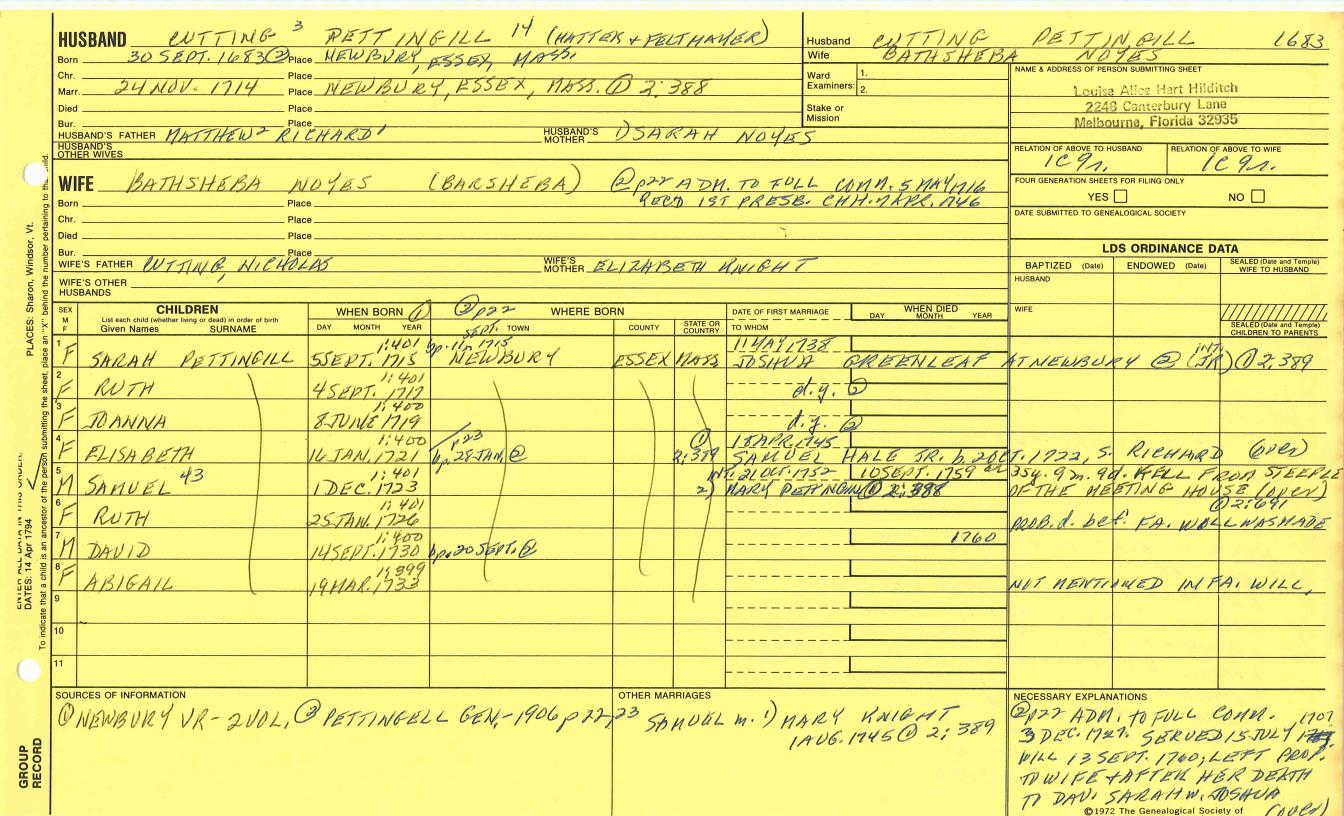 HUSBAND CUTTING 3 PETTINGILL 14 (HATTEK + FELTMAYER)
Born 30 SEPT. 1683 ② Place NEWBURY, ESSEX, MASS.
Chr. Place
Marr. 24 NOV. 1714 Place NEWBURY, ESSEX, MASS. ① 2:388
Died Place
Bur. Place
HUSBAND'S FATHER MATTHEW 2 RICHARD 1 HUSBAND'S MOTHER 1) SARAH NOYES
HUSBAND'S OTHER WIVES
Husband CUTTING PETTINGILL 1683
Wife BATHSHEBA NOYES
Ward Examiners: 1.
2.
Stake or Mission
NAME & ADDRESS OF PERSON SUBMITTING SHEET
Louise Alice Hart Hilditch
2248 Canterbury Lane
Melbourne, Florida 32935
RELATION OF ABOVE TO HUSBAND RELATION OF ABOVE TO WIFE
1C9r. 1C9r.
FOUR GENERATION SHEETS FOR FILING ONLY
YES NO
DATE SUBMITTED TO GENEALOGICAL SOCIETY
WIFE BATHSHEBA NOYES (BARSHEBA) ② p22 ADM. TO FULL COMM. 5 MAY 1716
REC'D 1ST PRESB. CHH. 7 APR. 1746
Born Place
Chr. Place
Died Place
Bur. Place
WIFE'S FATHER CUTTING, NICHOLAS WIFE'S MOTHER ELIZABETH KNIGHT
WIFE'S OTHER HUSBANDS
LDS ORDINANCE DATA
BAPTIZED (Date) ENDOWED (Date) SEALED (Date and Temple) WIFE TO HUSBAND
HUSBAND
WIFE
SEALED (Date and Temple) CHILDREN TO PARENTS
SEX M F CHILDREN WHEN BORN ① ② p22 WHERE BORN DATE OF FIRST MARRIAGE WHEN DIED
List each child (whether living or dead) in order of birth
Given Names SURNAME DAY MONTH YEAR TOWN COUNTY STATE OR COUNTRY TO WHOM DAY MONTH YEAR
1 1:401 bp. 11 SEPT. 1715 11 MAY 1738
F SARAH PETTINGILL 5 SEPT. 1715 NEWBURY ESSEX MASS JOSHUA GREENLEAF AT NEWBURY ② (JR) INT. ① 2:389
2 1:401
F RUTH 4 SEPT. 1717 d.y. ②
3 1:400
F JOANNA 8 JUNE 1719 d.y. ②
4 1:400 p23 ① 18 APR. 1745
F ELISABETH 16 JAN. 1721 bp. 28 JAN. ② 2:389 SAMUEL HALE JR. b. 2 OCT. 1722, S. RICHARD (over)
5 1:401 INT. 21 OCT. 1752 10 SEPT. 1759 35y. 9m. 9d. FELL FROM STEEPLE
M SAMUEL 43 1 DEC. 1723 2) MARY PETTINGILL ① 2:388 OF THE MEETING HOUSE (over)
6 1:401 ① 2:691
F RUTH 25 JAN. 1726 PROB. d. bef. FA. WILL WAS MADE
7 1:400
M DAVID 14 SEPT. 1730 bp. 20 SEPT. ② 1760
8 1:399
F ABIGAIL 19 MAR. 1733 NOT MENTIONED IN FA. WILL,
9
10
11
SOURCES OF INFORMATION
① NEWBURY VR - 2 VOL, ② PETTINGELL GEN.-1906 p 22, 23
OTHER MARRIAGES
SAMUEL m. 1) MARY KNIGHT
1 AUG. 1745 ① 2:389
NECESSARY EXPLANATIONS
② p22 ADM. TO FULL COMM.
3 DEC. 1727. SERVED 15 JULY 1707
WILL 13 SEPT. 1760; LEFT PROP.
TO WIFE + AFTER HER DEATH
TO DAU. SARAH w. JOSHUA
(over)
©1972 The Genealogical Society of
GROUP RECORD
ENTER ALL DATA IN THIS ORDER:
DATES: 14 Apr 1794 PLACES: Sharon, Windsor, Vt.
To indicate that a child is an ancestor of the person submitting the sheet, place an "X" behind the number pertaining to that child.